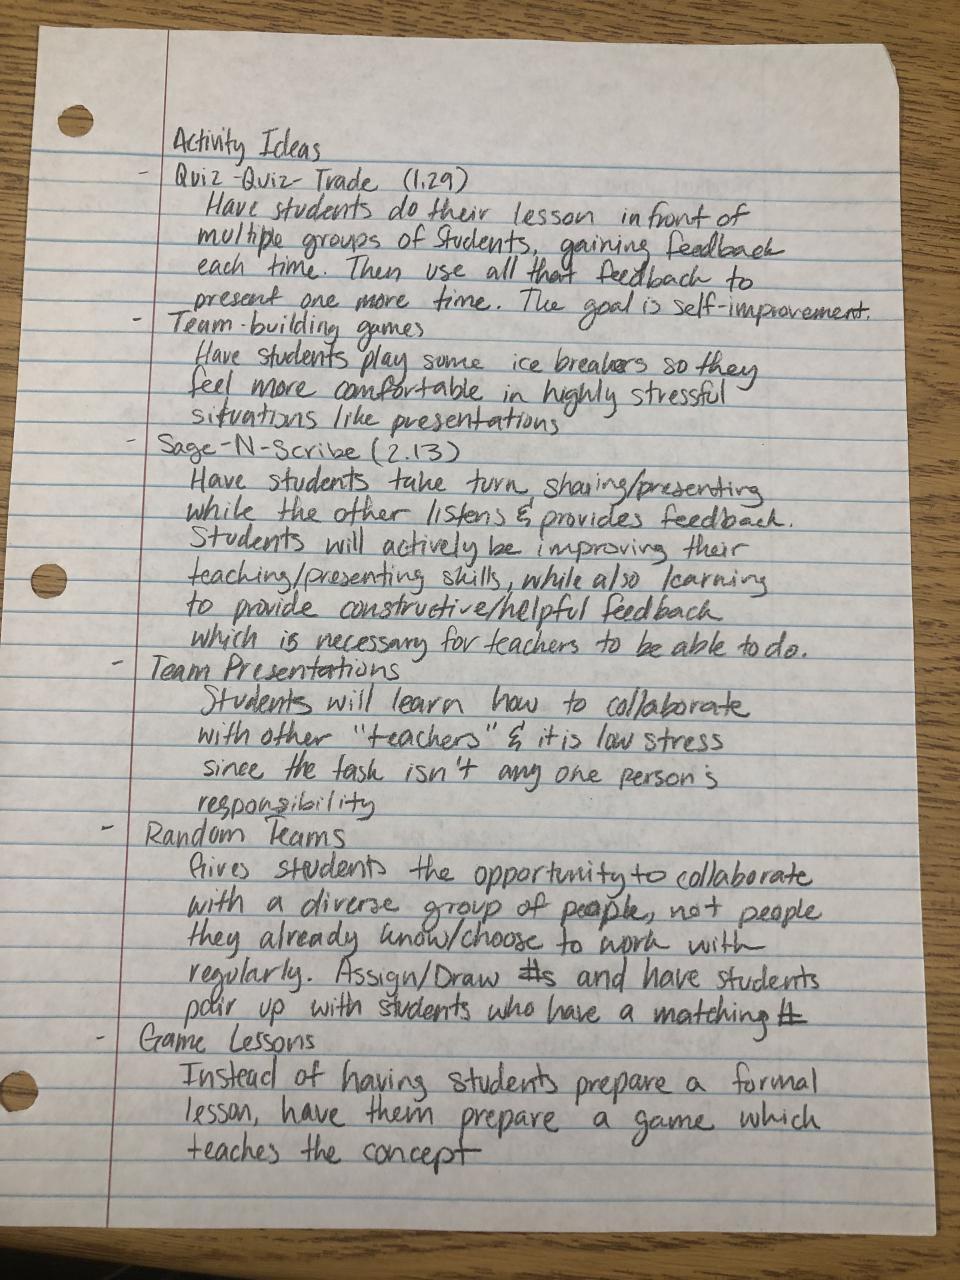 Activity Ideas
- Quiz-Quiz-Trade (1.29)
Have students do their lesson in front of
multiple groups of students, gaining feedback
each time. Then use all that feedback to
present one more time. The goal is self-improvement.
- Team-building games
Have students play some ice breakers so they
feel more comfortable in highly stressful
situations like presentations
- Sage-N-Scribe (2.13)
Have students take turn sharing/presenting
while the other listens & provides feedback.
Students will actively be improving their
teaching/presenting skills, while also learning
to provide constructive/helpful feedback
which is necessary for teachers to be able to do.
- Team Presentations
Students will learn how to collaborate
with other "teachers" & it is low stress
since the task isn't any one person's
responsibility
- Random Teams
Gives students the opportunity to collaborate
with a diverse group of people, not people
they already know/choose to work with
regularly. Assign/Draw #s and have students
pair up with students who have a matching #
- Game Lessons
Instead of having students prepare a formal
lesson, have them prepare a game which
teaches the concept